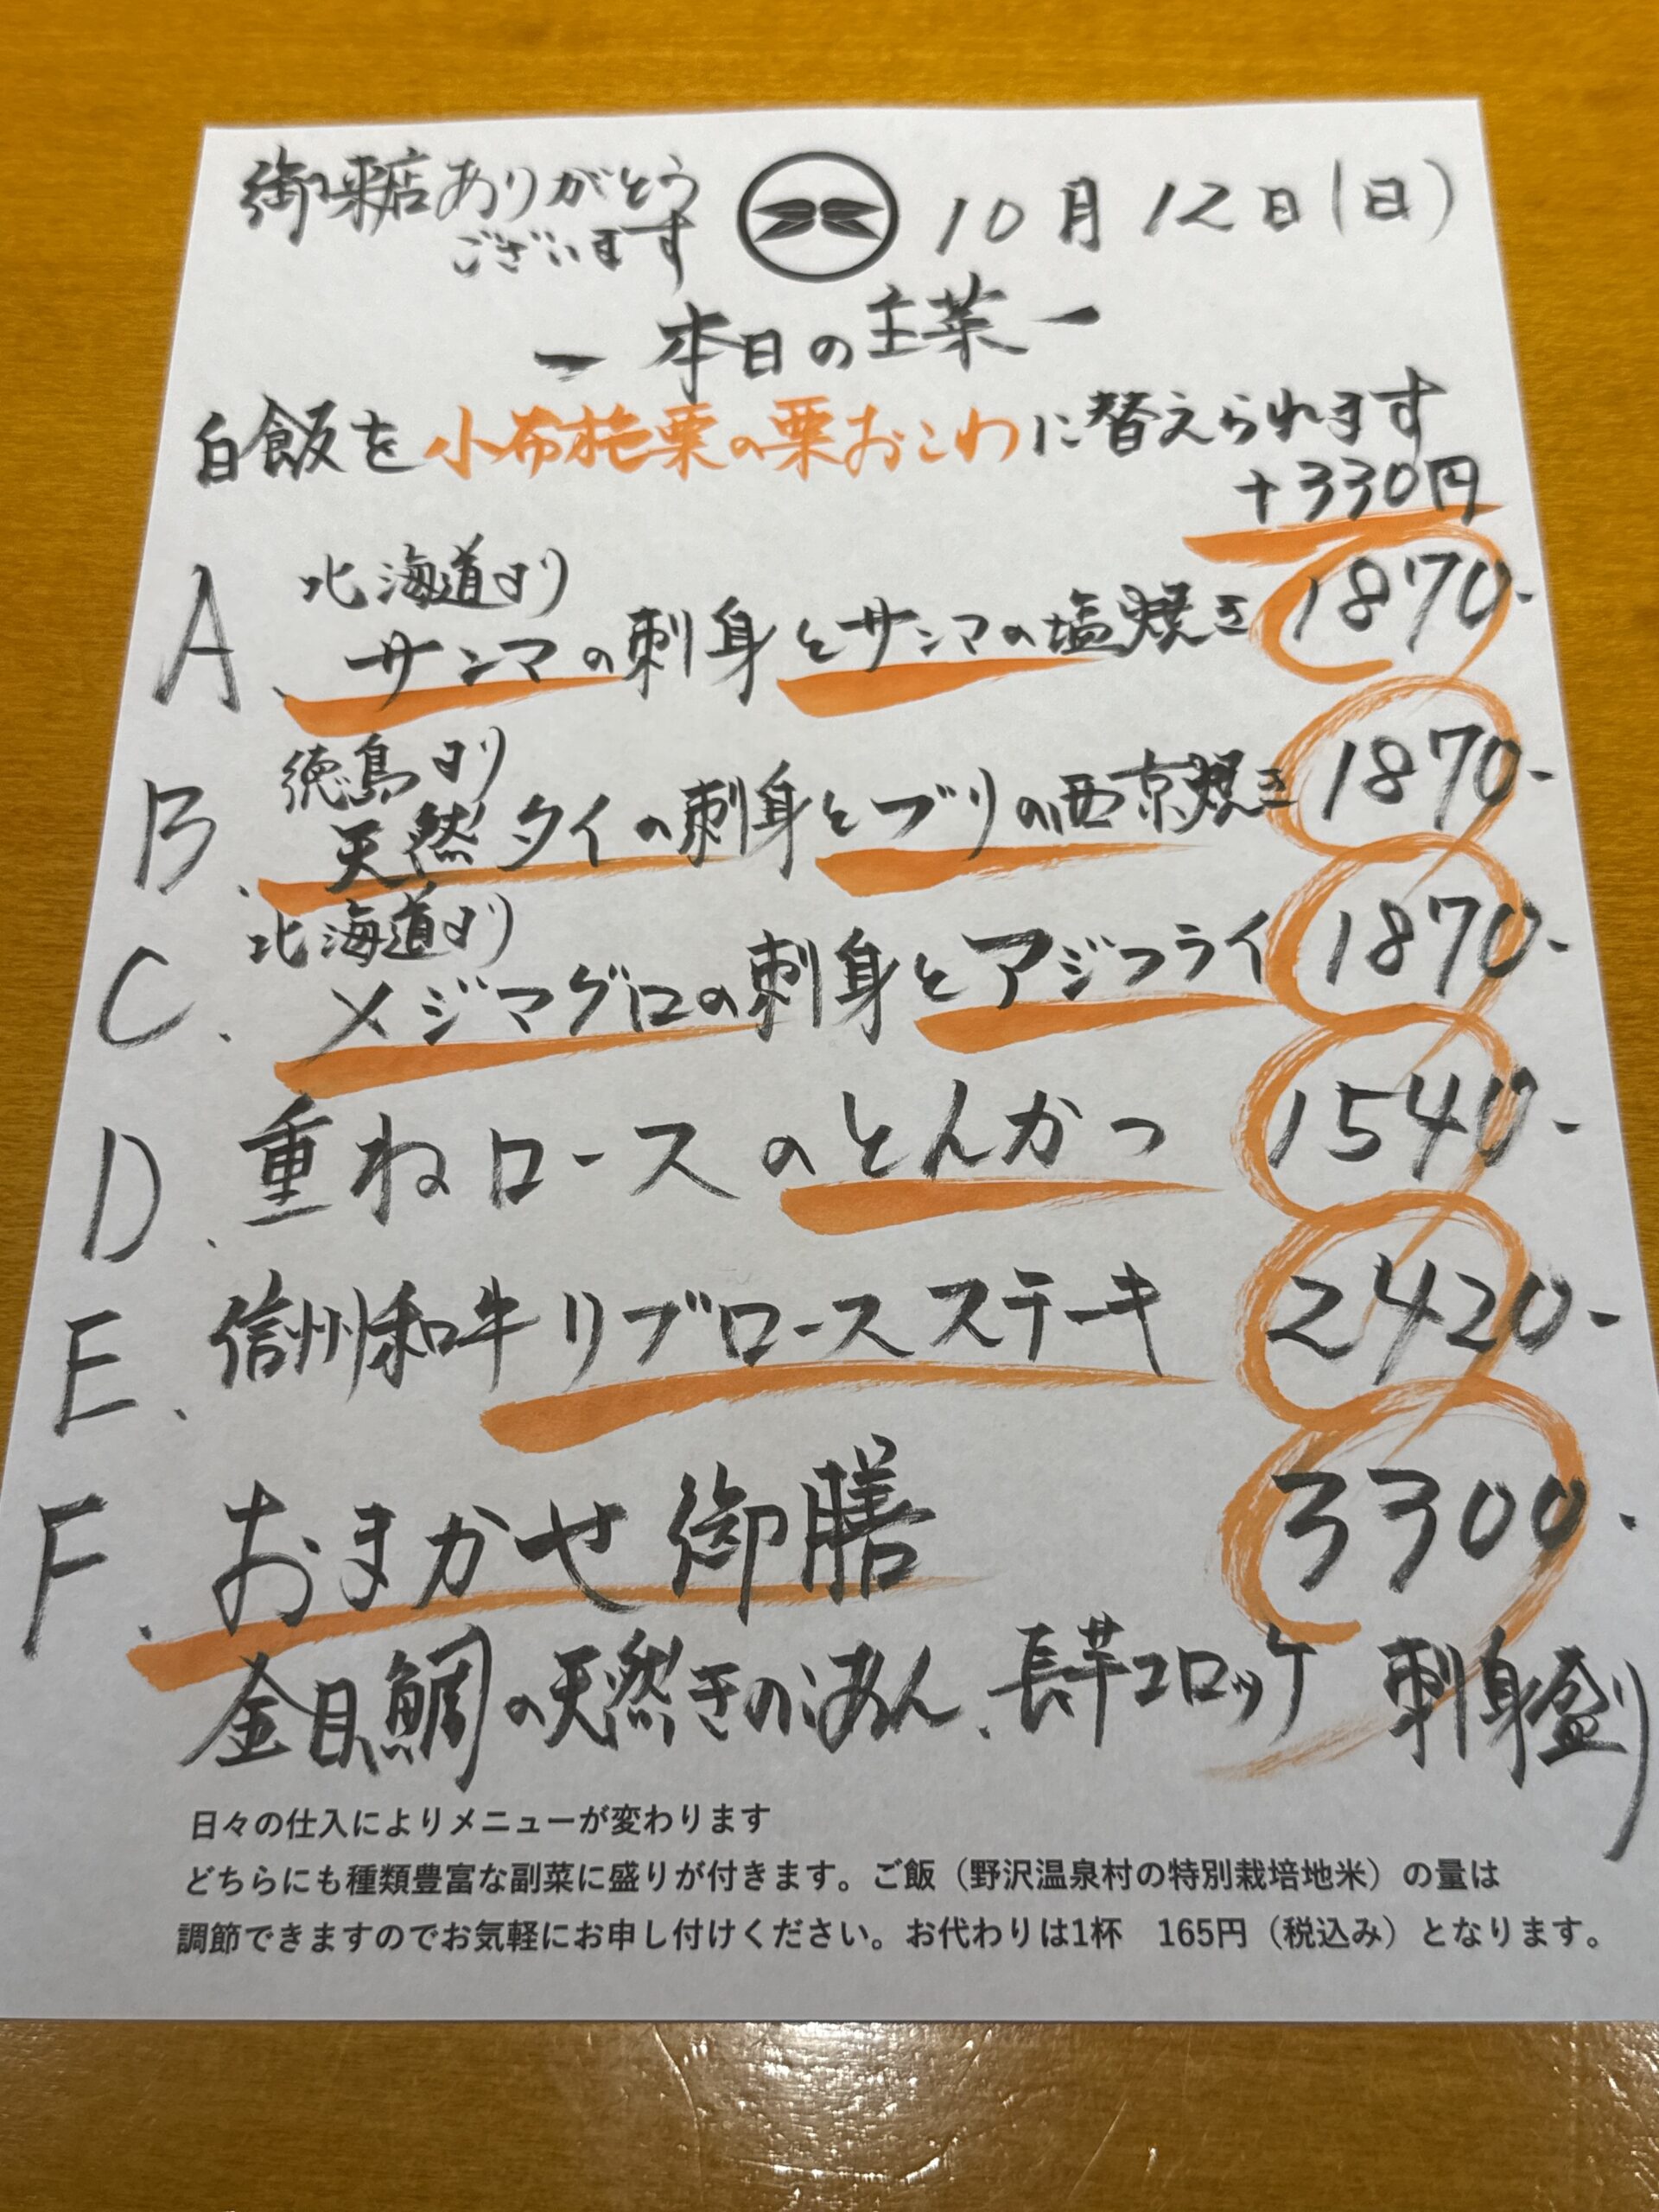 御来店ありがとう
ございます
10月12日(日)
ー本日の主菜ー
白飯を小布施栗の栗おこわに替えられます
+330円
北海道より
A、サンマの刺身とサンマの塩焼き 1870-
徳島より
B、天然タイの刺身とブリの西京焼き 1870-
北海道より
C、メジマグロの刺身とアジフライ 1870-
D、重ねロースのとんかつ 1540-
E、信州和牛リブロースステーキ 2420-
F、おまかせ御膳 3300-
金目鯛の天然きのこあん、長芋コロッケ 刺身盛り
日々の仕入によりメニューが変わります
どちらにも種類豊富な副菜に盛りが付きます。ご飯（野沢温泉村の特別栽培地米）の量は
調節できますのでお気軽にお申し付けください。お代わりは1杯　165円（税込み）となります。